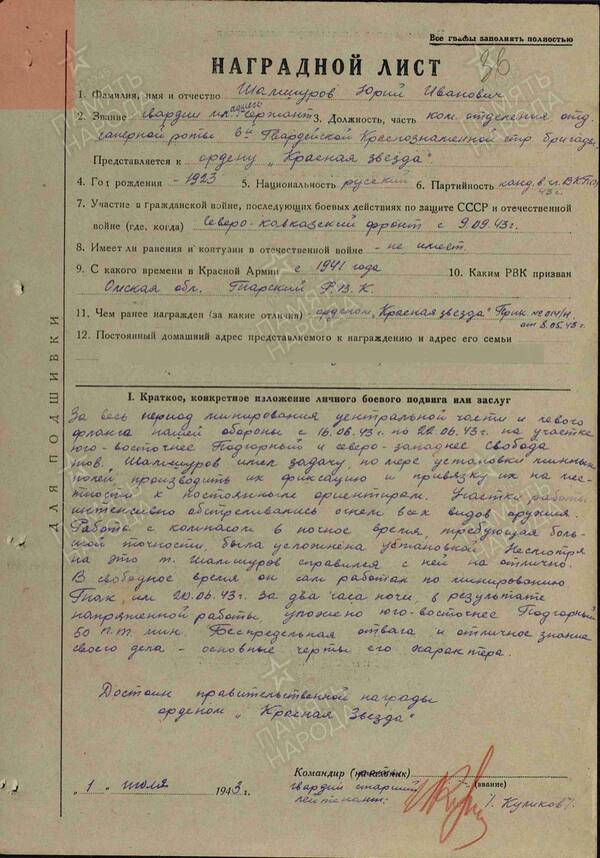 Все графы заполнять полностью
36
НАГРАДНОЙ ЛИСТ
1. Фамилия, имя и отчество Шалшуров Юрий Иванович
2. Звание гвардии мл. сержант 3. Должность, часть ком. отделения отд.
саперной роты 6й Гвардейской Краснознаменной стр. бригады
Представляется к ордену „Красная звезда"
4. Год рождения - 1923 5. Национальность русский 6. Партийность канд. в чл. ВКП(б)
7. Участие в гражданской войне, последующих боевых действиях по защите СССР и отечественной
войне (где, когда) Северо-Кавказский фронт с 9.09.43г.
8. Имеет ли ранения и контузии в отечественной войне - не имеет.
9. С какого времени в Красной Армии с 1941 года 10. Каким РВК призван
Омская обл. Тюкарский Р.В.К.
11. Чем ранее награжден (за какие отличия) орденом „Красная звезда" Прик. № 014/н.
от 5.05.43г.
12. Постоянный домашний адрес представляемого к награждению и адрес его семьи
ДЛЯ ПОДШИВКИ
I. Краткое, конкретное изложение личного боевого подвига или заслуг
За весь период минирования центральной части и левого
фланга нашей обороны с 16.06.43г. по 22.06.43г. на участке
юго-восточнее Подгорный и северо-западнее Свобода
тов. Шалшуров имел задачу, по мере установки минных
полей производить их фиксацию и привязку их на мес-
тности к постоянным ориентирам. Участки работы
интенсивно обстреливались огнем всех видов оружия.
Работа с компасом в ночное время, требующая боль-
шой точности, была усложнена установкой. Несмотря
на это т. Шалшуров справился с ней на отлично.
В свободное время он сам работал по минированию
Так, им 20.06.43г. за два часа ночи, в результате
напряженной работы, уложено юго-восточнее Подгорный
50 п.т. мин. Беспредельная отвага и отличное знание
своего дела - основные черты его характера.
Достоин правительственной награды
орденом „Красная Звезда"
Командир (начальник)
гвардии старший (звание)
лейтенант: /. Куликов/.
„1" июля 1943 г.
ПАМЯТЬ НАРОДА